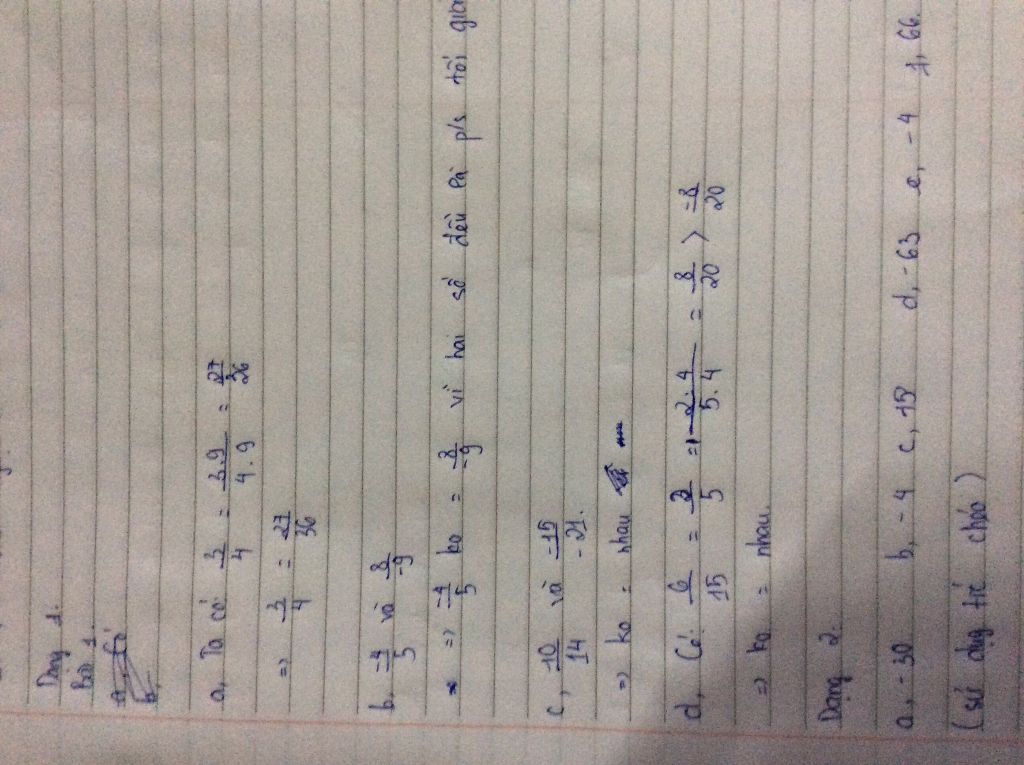 Dạng 1.
Bài 1.
a, Ta có: 3/4 = 3.9/4.9 = 27/36
=> 3/4 = 27/36
b, -4/5 và 8/-9
=> -4/5 ko = 8/-9 vì hai số đều là p/s tối giản
c, -10/14 và -15/-21.
=> ko = nhau
d, Có: 6/15 = 2/5 = 2.4/5.4 = 8/20 > -8/20
=> ko = nhau.
Dạng 2.
a, -30 b, -4 c, 15 d, -63 e, -4 1, 66.
(sử dụng t/c chéo)